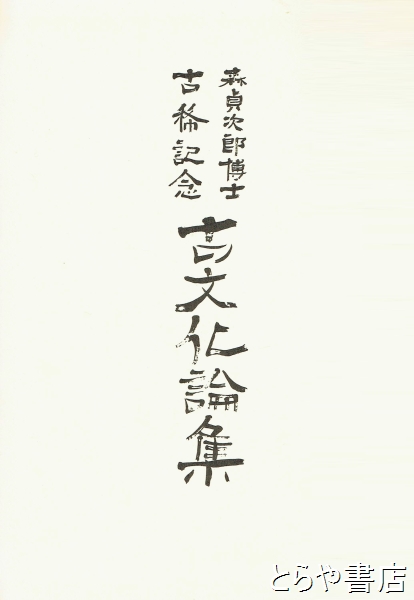 森貞次郎博士
古稀記念
古文化論集
とらや書店